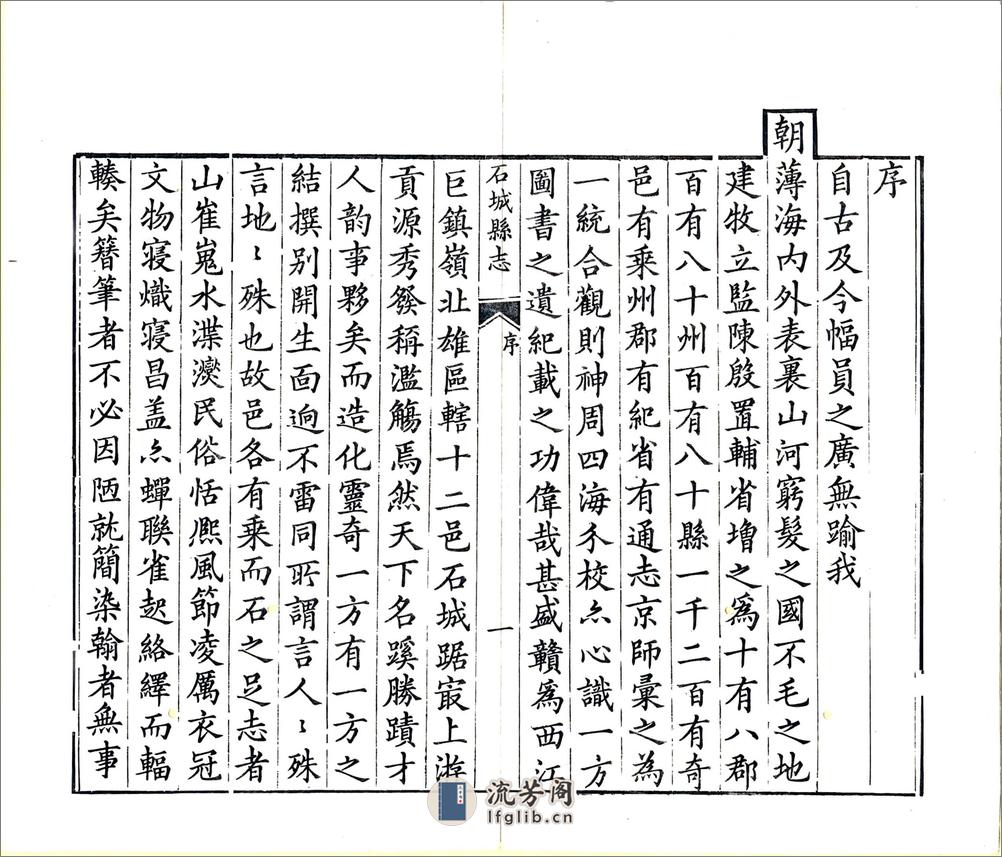 序
自古及今幅員之廣無踰我
朝薄海內外表裏山河窮髮之國不毛之地
建牧立監陳殷置輔省増之爲十有八郡
百有八十州百有八十縣一千二百有奇
邑有乗州郡有紀省有通志京師彙之為
一統合觀則神周四海分校亦心識一方
圖書之遺紀載之功偉哉甚盛贛爲西江
石城縣志
序
一
巨鎮嶺北雄區轄十二邑石城踞冣上游
貢源秀發稱濫觴焉然天下名蹊勝蹟才
人韵事夥矣而造化靈奇一方有一方之
結撰别開生面逈不雷同所謂言人〻殊
言地〻殊也故邑各有乗而石之足志者
山崔嵬水渫㶑民俗恬熈風節凌厲衣冠
文物寖熾寖昌盖亦蟬聯雀起絡繹而輻
輳矣簪筆者不必因陋就簡染翰者無事
流芳阁
lfglib.cn